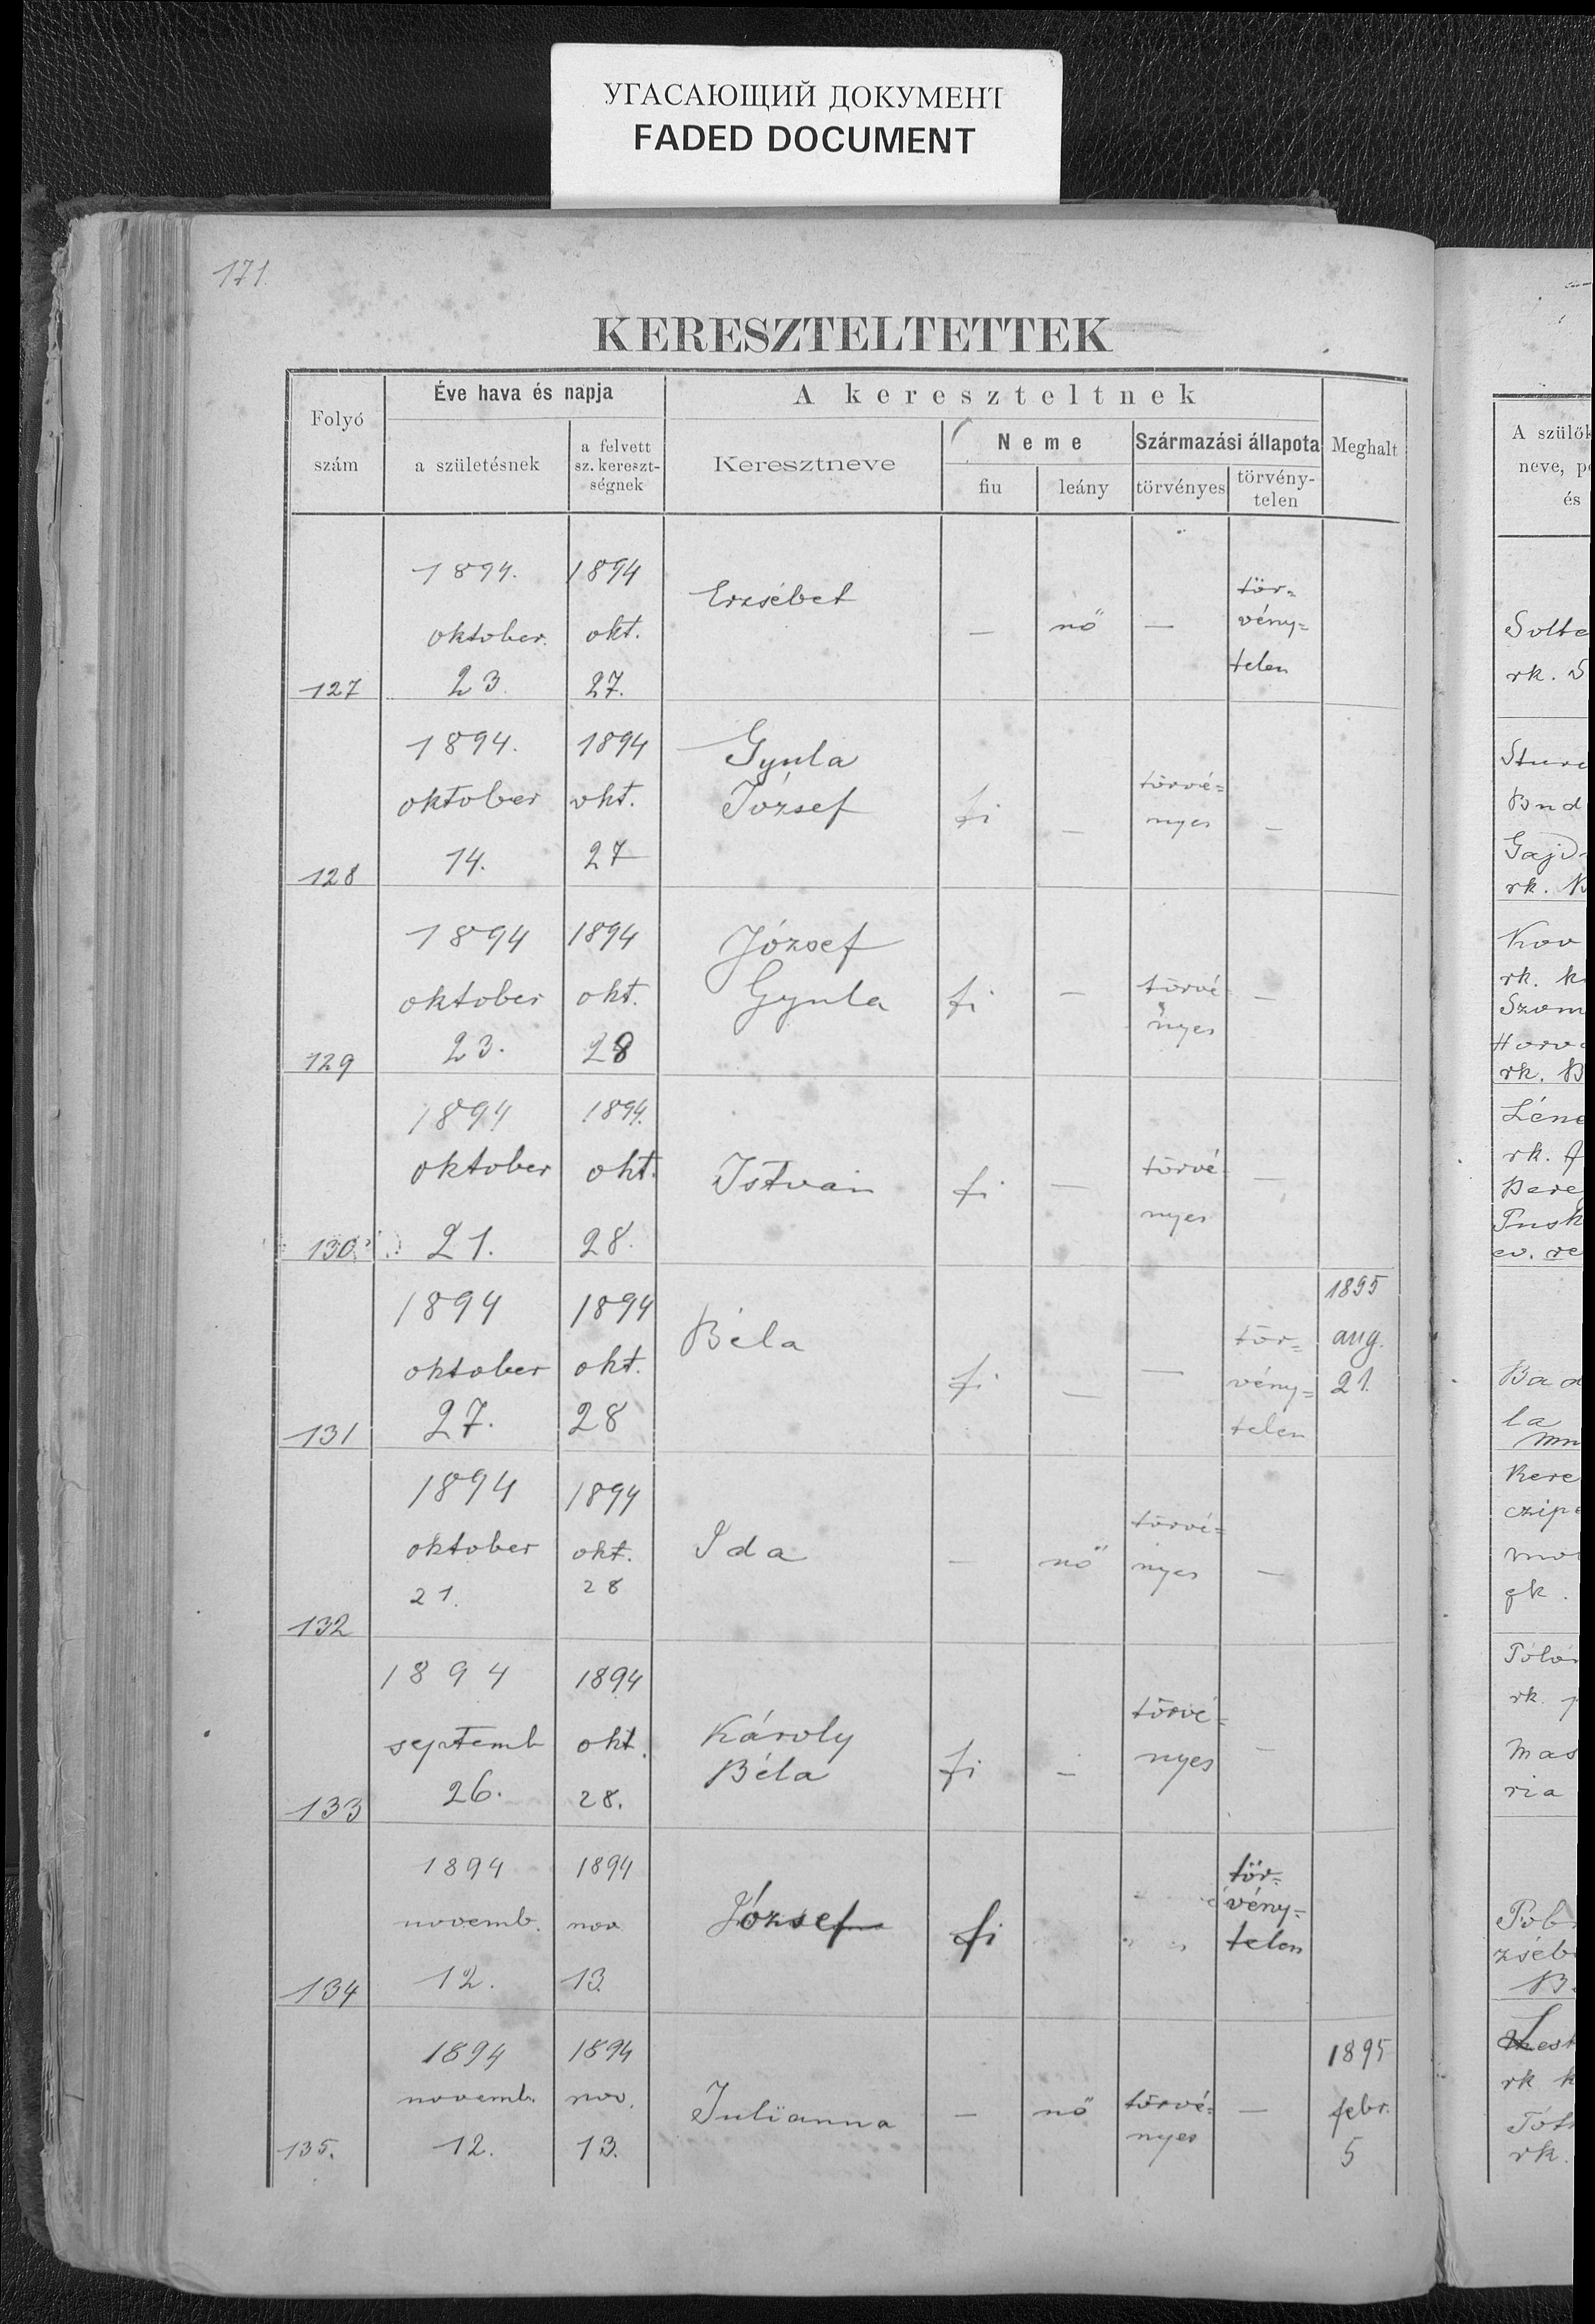 УГАСАЮЩИЙ ДОКУМЕНТ
FADED DOCUMENT
171.
KERESZTELTETTEK
Folyó szám
Éve hava és napja
a születésnek
a felvett sz. kereszt-ségnek
A kereszteltnek
Keresztneve
Neme
fiu
leány
Származási állapota
törvényes
törvény-telen
Meghalt
127 1894. oktober. 23. 1894 okt. 27. Erzsébet — nő — tör= vény= telen
128 1894. oktober 14. 1894 okt. 27 Gyula József fi — törvé= nyes —
129 1894 oktober 23. 1894 okt. 28 József Gyula fi — törvé= nyes —
130. 1894 oktober 21. 1894. okt. 28. István fi — törvé= nyes —
131 1894 oktober 27. 1894 okt. 28 Béla fi — — tör= vény= telen 1895 aug. 21.
132 1894 oktober 21. 1894 okt. 28 Ida — nő törvé= nyes —
133 1894 septemb 26. 1894 okt. 28. Károly Béla fi — törvé= nyes —
134 1894 novemb. 12. 1894 nov 13. József fi tör= vény= telen
135. 1894 novemb. 12. 1894 nov. 13. Julianna — nő törvé= nyes — 1895 febr. 5
A szülők
neve, p
és
Solte
rk. S
Gajd
rk.
Kov
rk. k
Szom
Horv
rk. B
Léne
rk.
Pere
Pusk
ev. re
Bad
la
Kere
czip
gk.
rk.
Mas
ria
zséb
B.
rk k
Tót
rk.